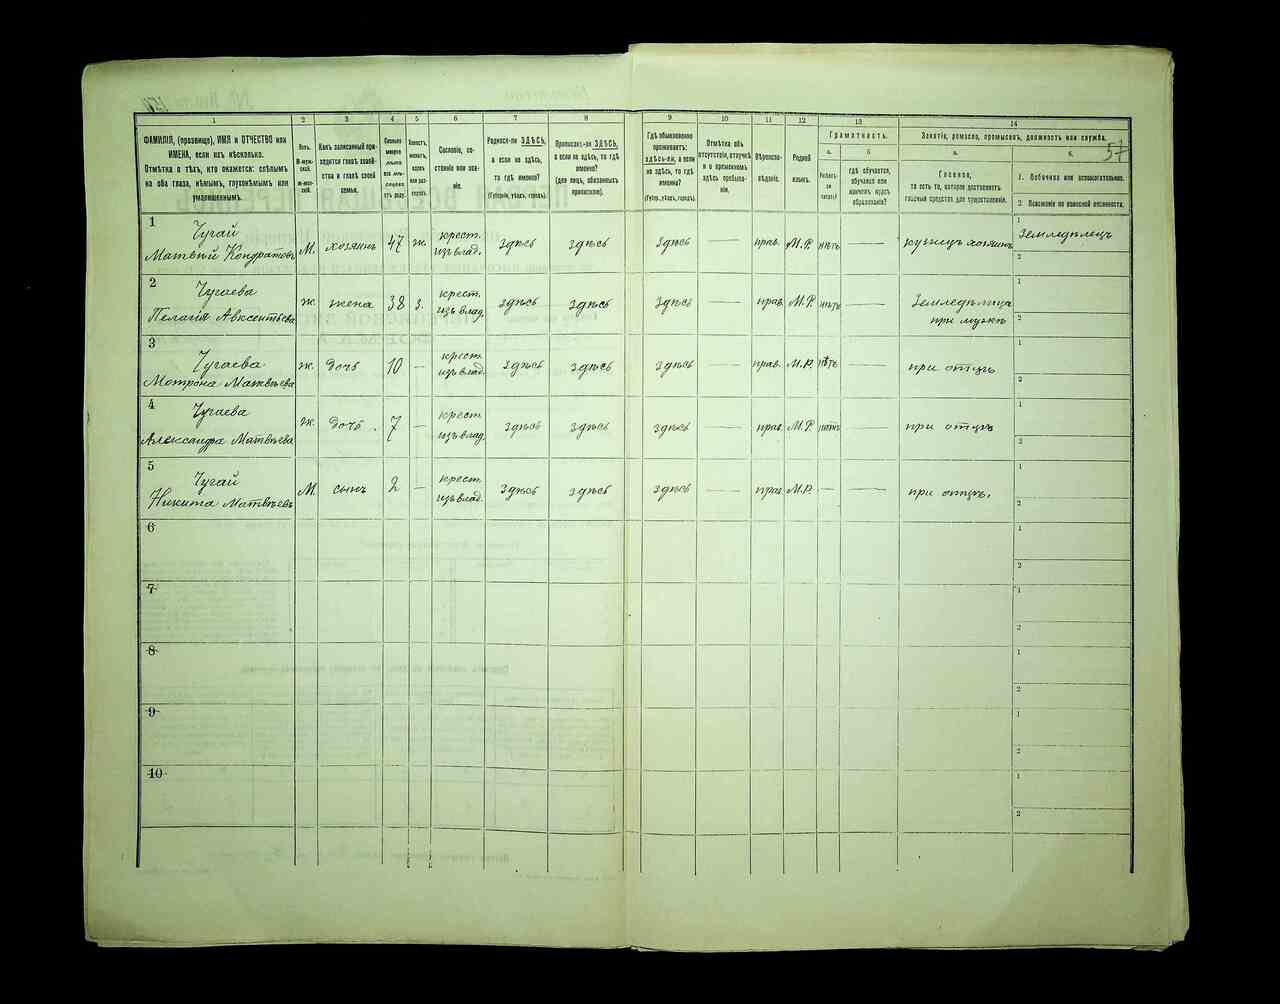 1 2 3 4 5 6 7 8 9 10 11 12 13 14
57
ФАМИЛІЯ, (прозвище), ИМЯ и ОТЧЕСТВО или
ИМЕНА, если ихъ нѣсколько.
Отмѣтка о тѣхъ, кто окажется: слѣпымъ
на оба глаза, нѣмымъ, глухонѣмымъ или
умалишеннымъ.
Полъ.
Какъ записанный при-
ходится главѣ хозяй-
ства и главѣ своей
семьи.
Сословіе, со-
стояніе или зва-
ніе.
Родился-ли ЗДѢСЬ,
а если не здѣсь,
то гдѣ именно?
(Губернія, уѣздъ, городъ).
Приписанъ-ли ЗДѢСЬ,
а если не здѣсь, то гдѣ
именно?
(для лицъ, обязанныхъ
припискою).
Гдѣ обыкновенно
проживаетъ:
здѣсь-ли, а если
не здѣсь, то гдѣ
именно?
(Губер., уѣздъ, городъ).
Отмѣтка объ
отсутствіи, отлучкѣ
и о временномъ
здѣсь пребыва-
ніи.
Вѣроиспо-
вѣданіе.
Родной
языкъ.
Грамотность.
а. б.
Умѣетъ-
ли
читать?
гдѣ обучается,
обучался или
кончилъ курсъ
образованія?
Занятіе, ремесло, промыселъ, должность или служба.
а. б.
Главное,
то есть то, которое доставляетъ
главныя средства для существованія.
1. Побочное или вспомогательное.
2 Положеніе по воинской повинности.
1 Чугай
Матвѣй Кондратовъ М. хозяинъ 47 ж. крест. изъ влад. здѣсь здѣсь здѣсь — прав. М.Р. нѣтъ — кузнецъ хозяинъ 1 Земледѣлецъ
2
2 Чугаева
Пелагія Авксентьева ж. жена 38 з. крест. изъ влад. здѣсь здѣсь здѣсь — прав. М.Р. нѣтъ — Земледѣлица при мужѣ 1
2
3 Чугаева
Мотрона Матвѣева ж. дочь 10 — крест. изъ влад. здѣсь здѣсь здѣсь — прав. М.Р. нѣтъ — при отцѣ 1
2
4 Чугаева
Александра Матвѣева ж. дочь. 7 — крест. изъ влад. здѣсь здѣсь здѣсь — прав. М.Р. нѣтъ — при отцѣ 1
2
5 Чугай
Никита Матвѣевъ М. сынъ 2 — крест. изъ влад. здѣсь здѣсь здѣсь — прав. М.Р. — — при отцѣ. 1
2
6 1
2
7 1
2
8 1
2
9 1
2
10 1
2